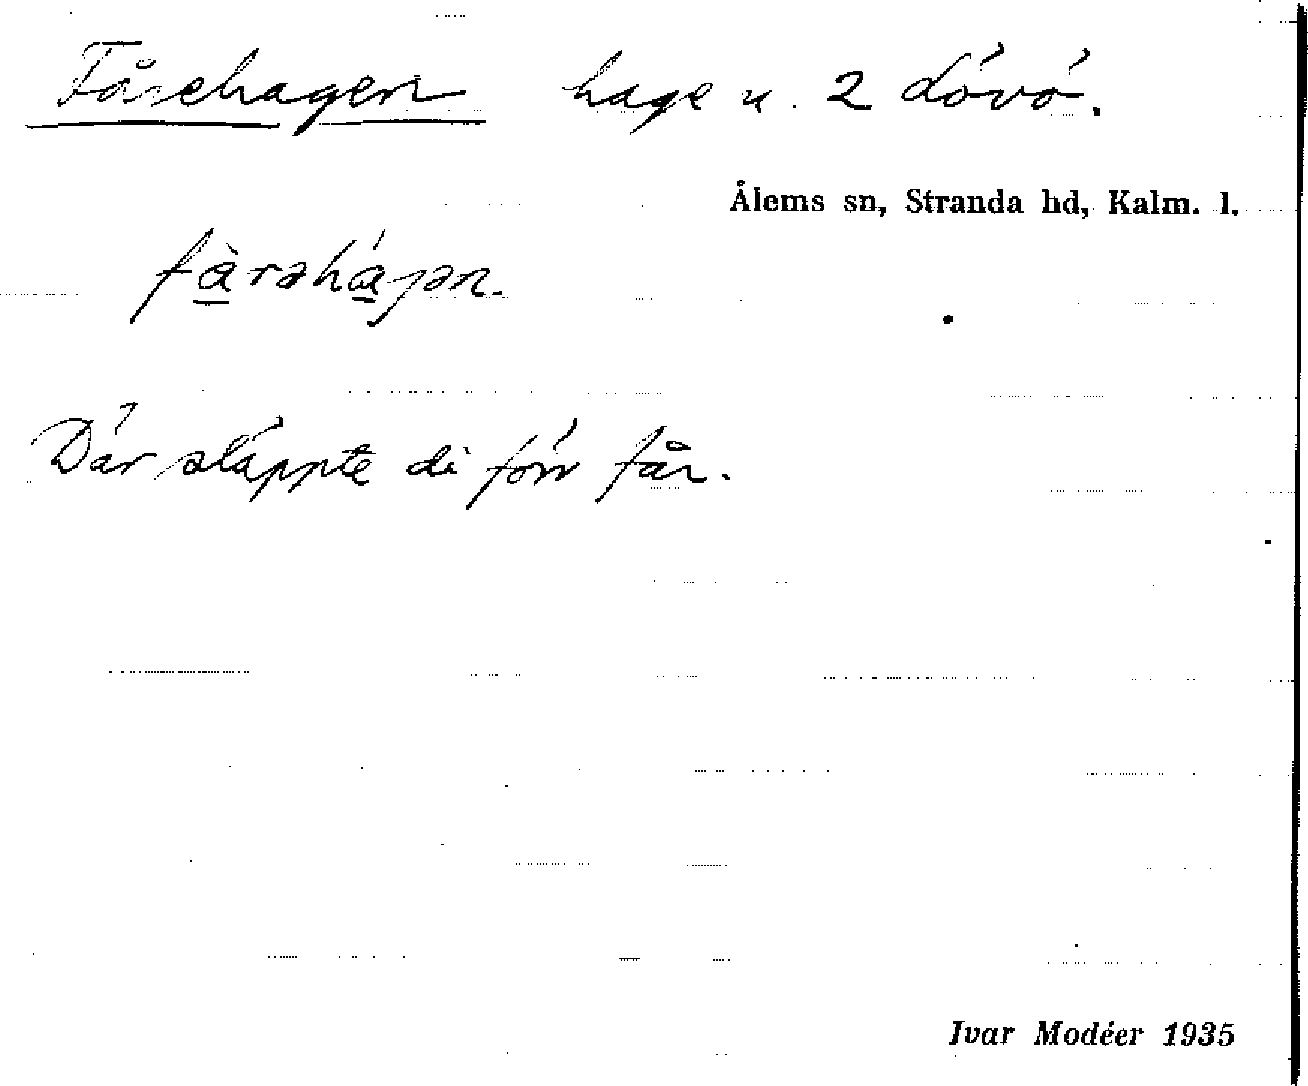 Fårehagen hage u. 2 Lövö.
Ålems sn, Stranda hd, Kalm. l.
fàrəháɡən.
Där släppte di förr får.
Ivar Modéer 1935